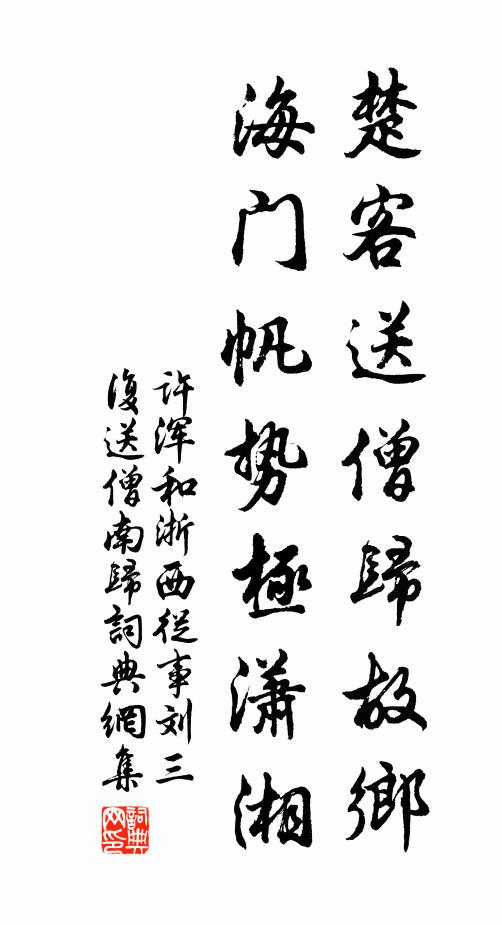 楚客送僧歸故鄉
海门帆势極潇湘
许浑和浙西從事刘三
復送僧南歸詞典網集
詞典网印